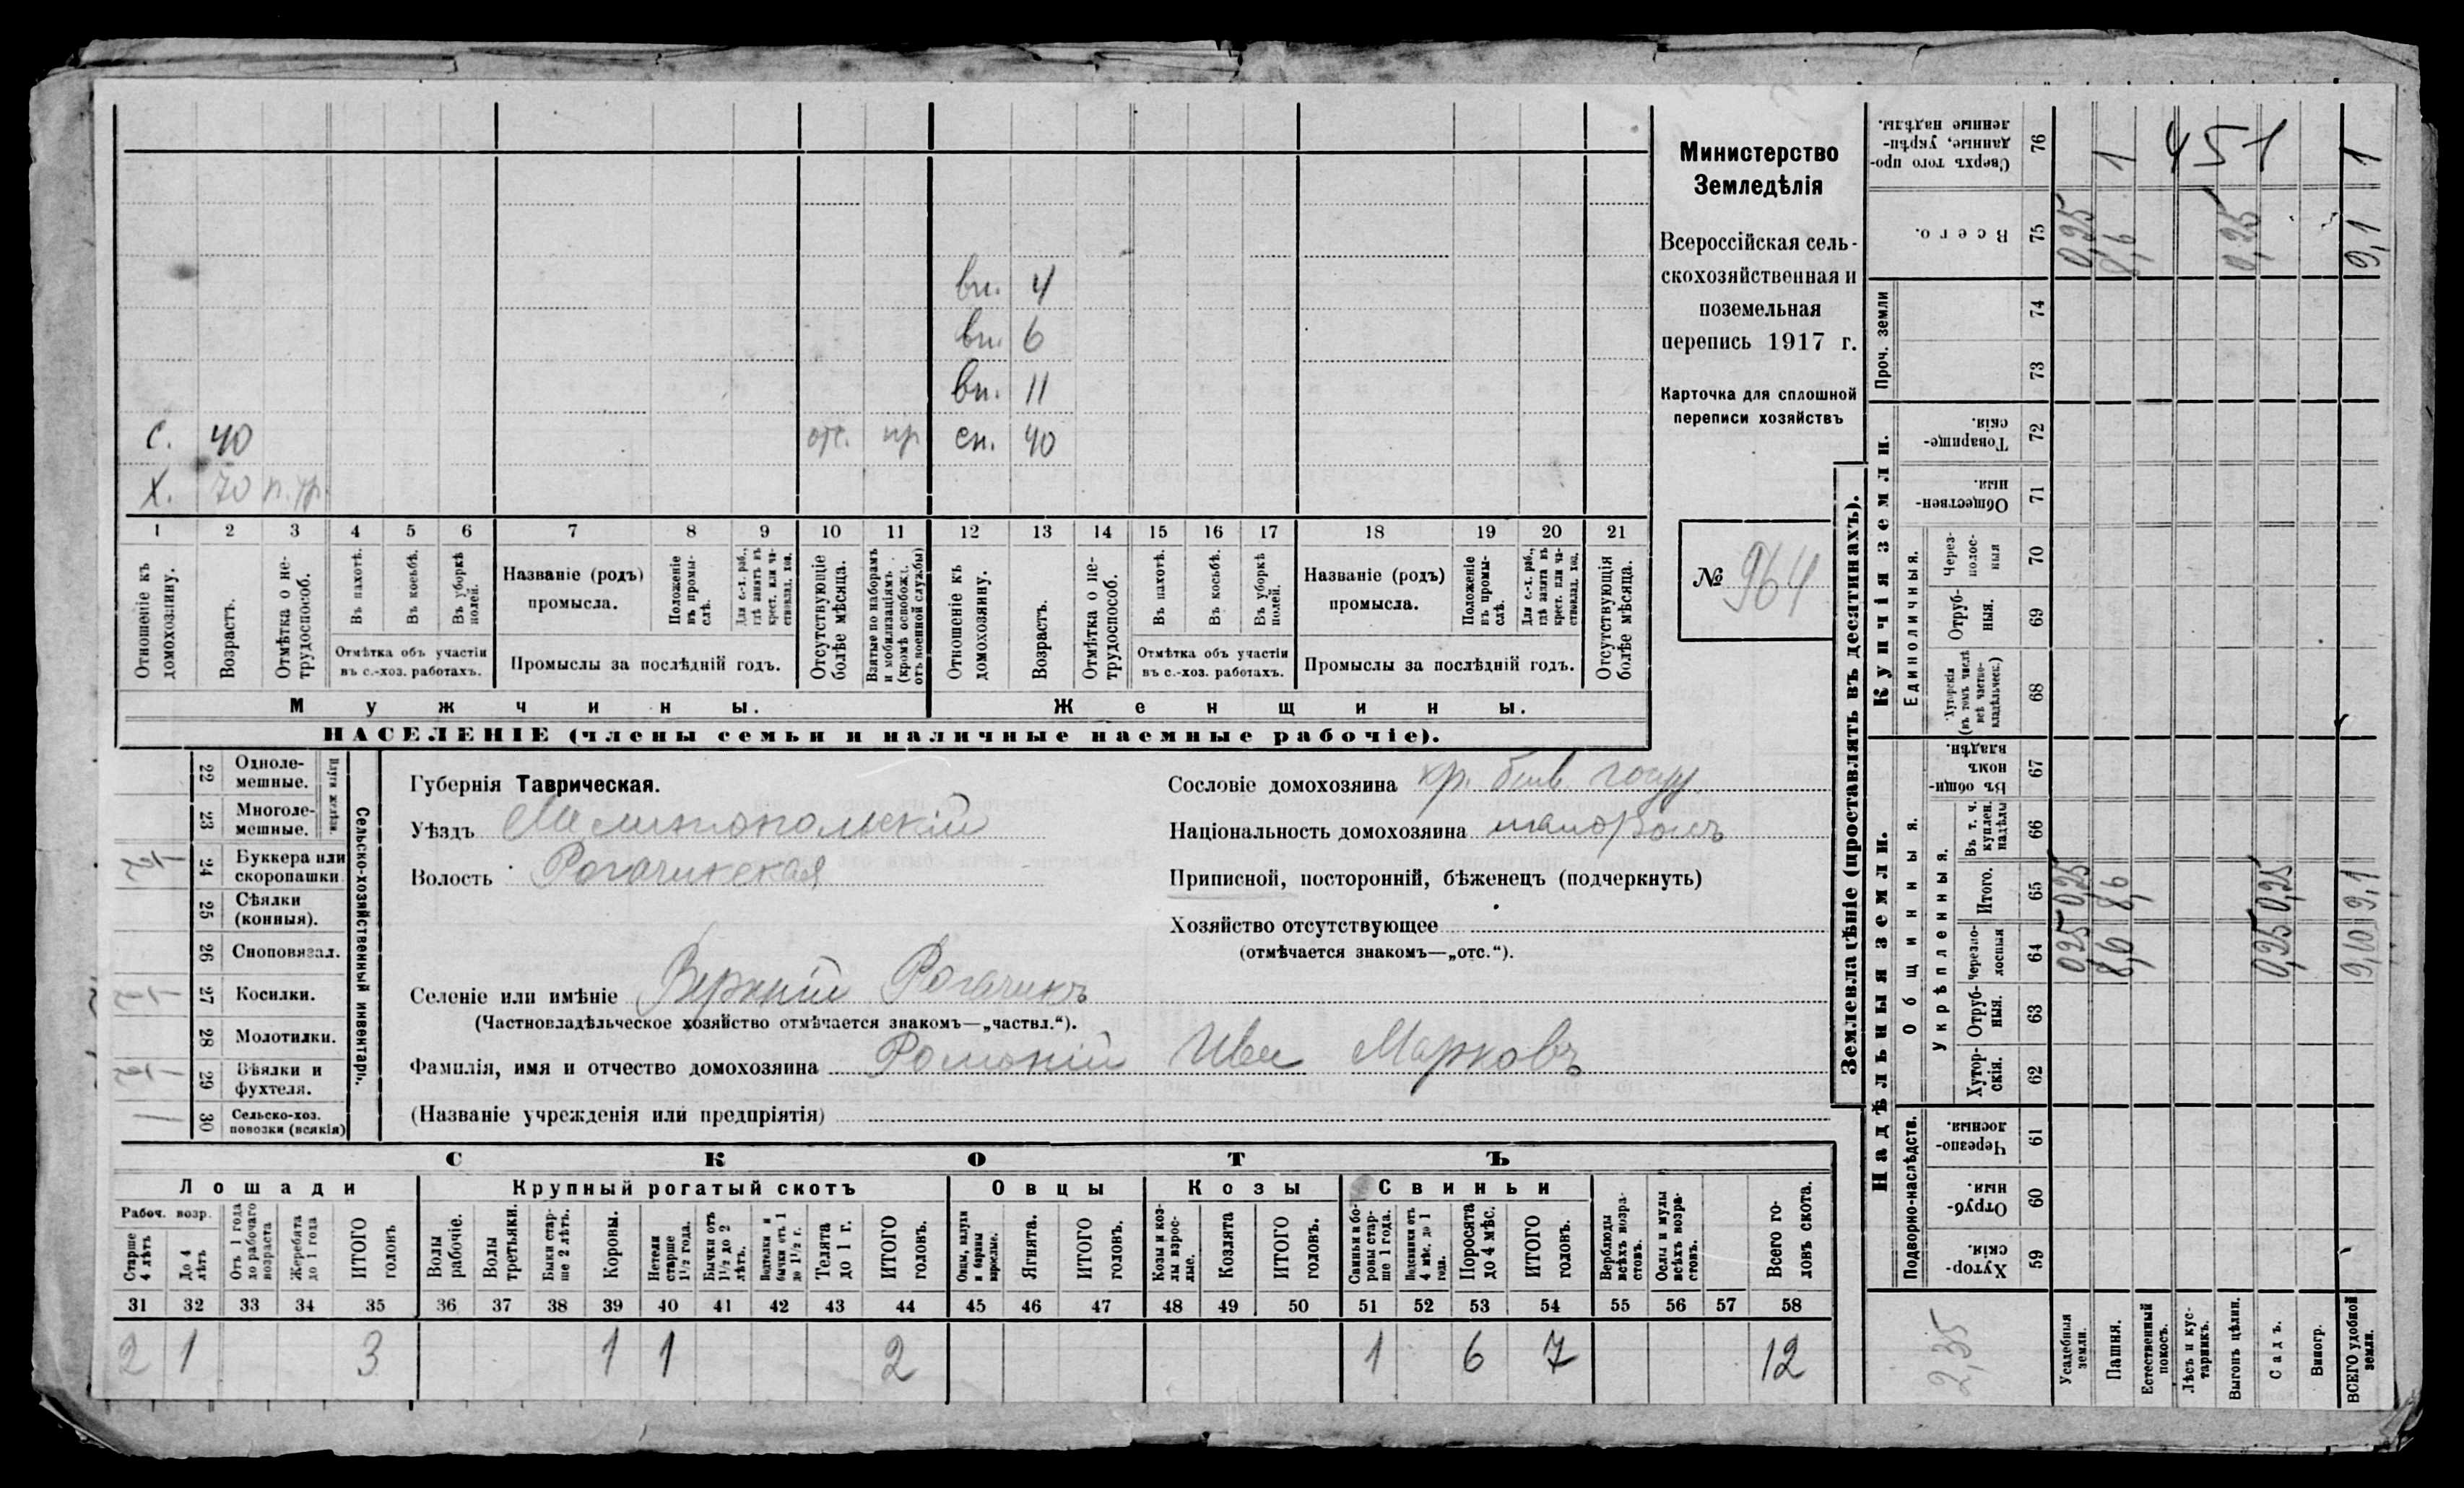 Министерство
Земледѣлія
Всероссійская сель-
скохозяйственная и
поземельная
перепись 1917 г.
Карточка для сплошной
переписи хозяйствъ
№ 964
вн. 4
вн. 6
вн. 11
С. 40 отс. пр сн. 40
Х. 70 н.тр.
1 2 3 4 5 6 7 8 9 10 11 12 13 14 15 16 17 18 19 20 21
Отношеніе къ домохозяину.
Возрастъ.
Отмѣтка о не-трудоспособ.
Въ пахотѣ.
Въ косьбѣ.
Въ уборкѣ полей.
Отмѣтка объ участіи
въ с.-хоз. работахъ.
Названіе (родъ)
промысла.
Положеніе въ промы-слѣ.
Для с.-х. раб., гдѣ занятъ въ крест. или ча-стновлад. хоз.
Промыслы за послѣдній годъ.
Отсутствующіе болѣе мѣсяца.
Взятые по наборамъ и мобилизаціямъ (кромѣ освобожд. отъ военной службы)
Отношеніе къ домохозяину.
Возрастъ.
Отмѣтка о не-трудоспособ.
Въ пахотѣ.
Въ косьбѣ.
Въ уборкѣ полей.
Отмѣтка объ участіи
въ с.-хоз. работахъ.
Названіе (родъ)
промысла.
Положеніе въ промы-слѣ.
Для с.-х. раб., гдѣ занята въ крест. или ча-стновлад. хоз.
Промыслы за послѣдній годъ.
Отсутствующія болѣе мѣсяца.
Мужчины. Женщины.
НАСЕЛЕНІЕ (члены семьи и наличные наемные рабочіе).
Сельско-хозяйственный инвентарь.
Плуги желѣзн.
22 Одноле-мешные.
23 Многоле-мешные.
1/2 24 Буккера или скоропашки
25 Сѣялки (конныя).
26 Сноповязал.
1/2 27 Косилки.
28 Молотилки.
1/2 29 Вѣялки и фухтеля.
1 30 Сельско-хоз. повозки (всякія)
Губернія Таврическая.
Уѣздъ Мелитопольскій
Волость Рогачикская
Сословіе домохозяина кр. быв госуд.
Національность домохозяина малороссъ
Приписной, посторонній, бѣженецъ (подчеркнуть)
Хозяйство отсутствующее
(отмѣчается знакомъ—„отс.“).
Селеніе или имѣніе Верхній Рогачикъ
(Частновладѣльческое хозяйство отмѣчается знакомъ—„частвл.“).
Фамилія, имя и отчество домохозяина Романій Ива Марковъ
(Названіе учрежденія или предпріятія)
СКОТЪ
Лошади Крупный рогатый скотъ Овцы Козы Свиньи
Рабоч. возр.
Старше 4 лѣтъ
До 4 лѣтъ
Отъ 1 года до рабочаго возраста
Жеребята до 1 года
ИТОГО головъ
Волы рабочіе.
Волы третьяки.
Быки стар-ше 2 лѣтъ.
Коровы.
Нетели старше 1½ года.
Бычки отъ 1½ до 2 лѣтъ.
Подтелки и бычки отъ 1 до 1½ г.
Телята до 1 г.
ИТОГО головъ.
Овцы, валухи и бараны взрослые.
Ягнята.
ИТОГО головъ.
Козы и коз-лы взрос-лые.
Козлята
ИТОГО головъ.
Свиньи и бо-ровы стар-ше 1 года.
Подсвинки отъ 4 мѣс. до 1 года.
Поросята до 4 мѣс.
ИТОГО головъ.
Верблюды всѣхъ возра-стовъ.
Ослы и мулы всѣхъ возра-стовъ.
Всего го-ловъ скота.
31 32 33 34 35 36 37 38 39 40 41 42 43 44 45 46 47 48 49 50 51 52 53 54 55 56 57 58
2 1 3 1 1 2 1 6 7 12
Землевладѣніе (проставлять въ десятинахъ).
Надѣльныя земли.
Купчія земли.
Проч. земли
Подворно-наслѣдств.
Общинныя.
Укрѣпленныя.
Единоличныя.
Хутор-скія. 59
Отруб-ныя. 60
Черезпо-лосныя. 61
Хутор-скія. 62
Отруб-ныя. 63
Черезпо-лосныя 64
Итого. 65
Въ т. ч. куплен. надѣлы 66
Въ общи-номъ владѣн. 67
Хуторскія (въ томъ числѣ всѣ частно-владѣльческ.) 68
Отруб-ныя. 69
Через-полос-ныя 70
Обществен-ныя. 71
Товарище-скія. 72
73
74
Всего. 75
Сверхъ того про-данные, укрѣп-ленные надѣлы. 76
2,35
Усадебныя земли. 0,25 0,25 0,25
Пашня. 8,6 8,6 8,6 1
Естественный покосъ.
Лѣсъ и кус-тарникъ.
Выгонъ цѣлин. 0,25
Садъ. 0,25 0,25
Виногр.
ВСЕГО удобной земли. 9,10 9,1 9,1 1
451